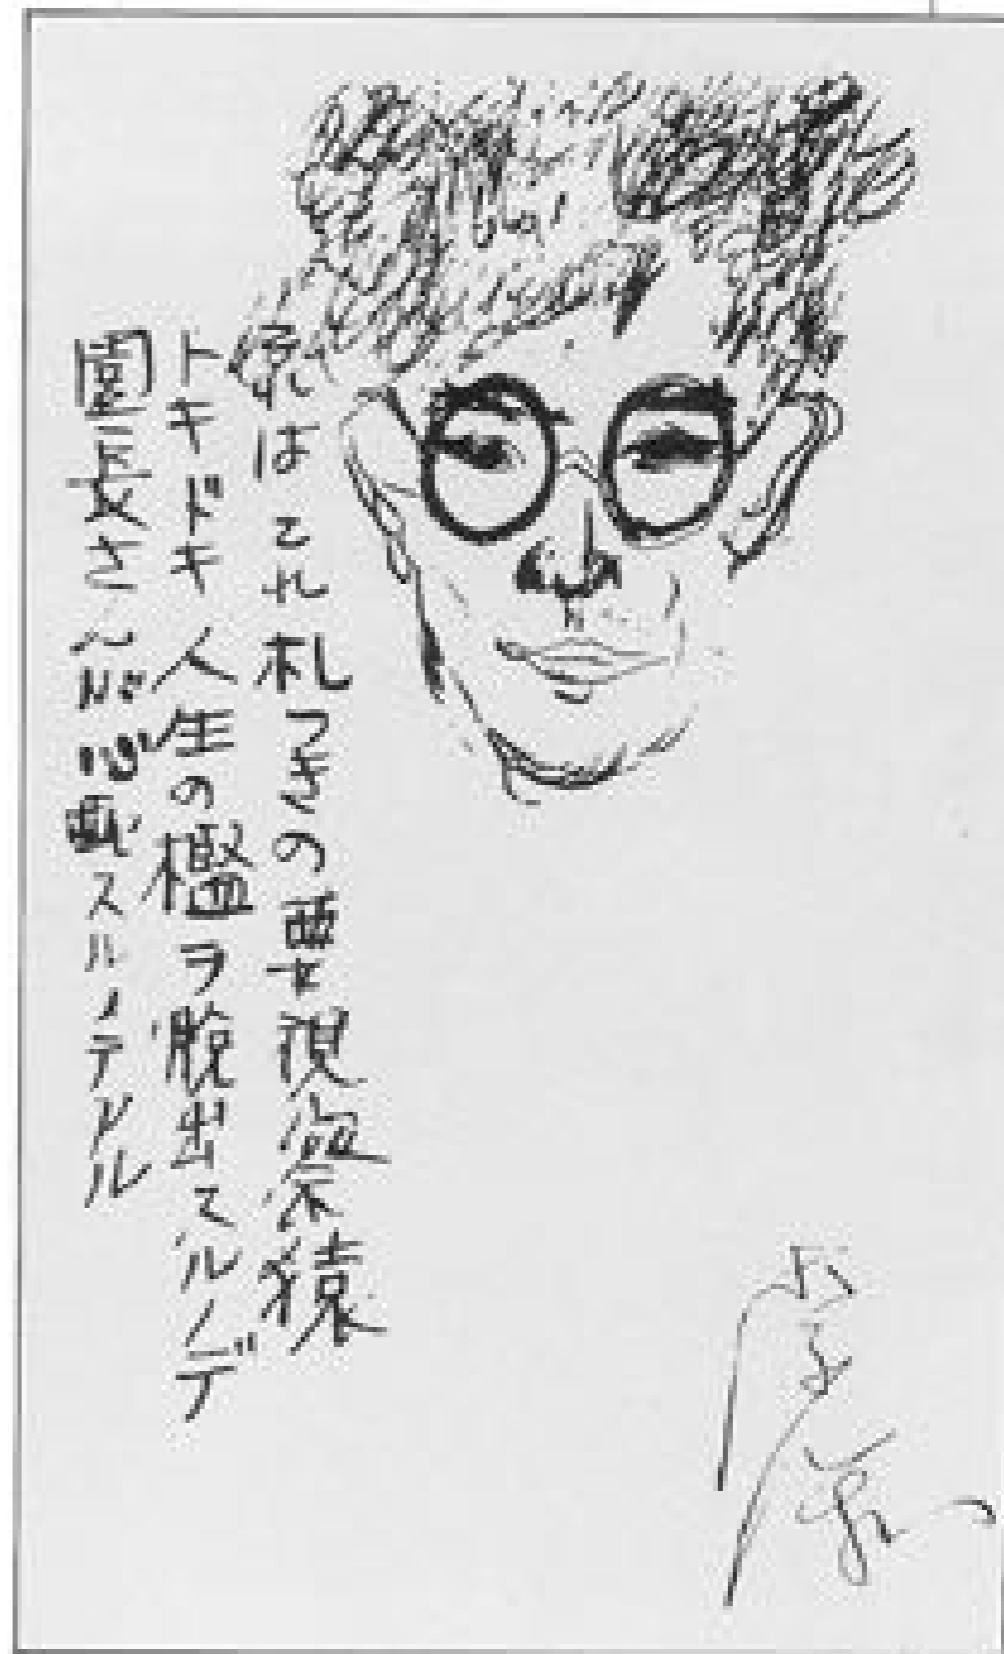 はこれ札つきの要視察猿
トキドキ人生の檻ヲ脱出スルノデ
園長さんガ心配スルノデアル